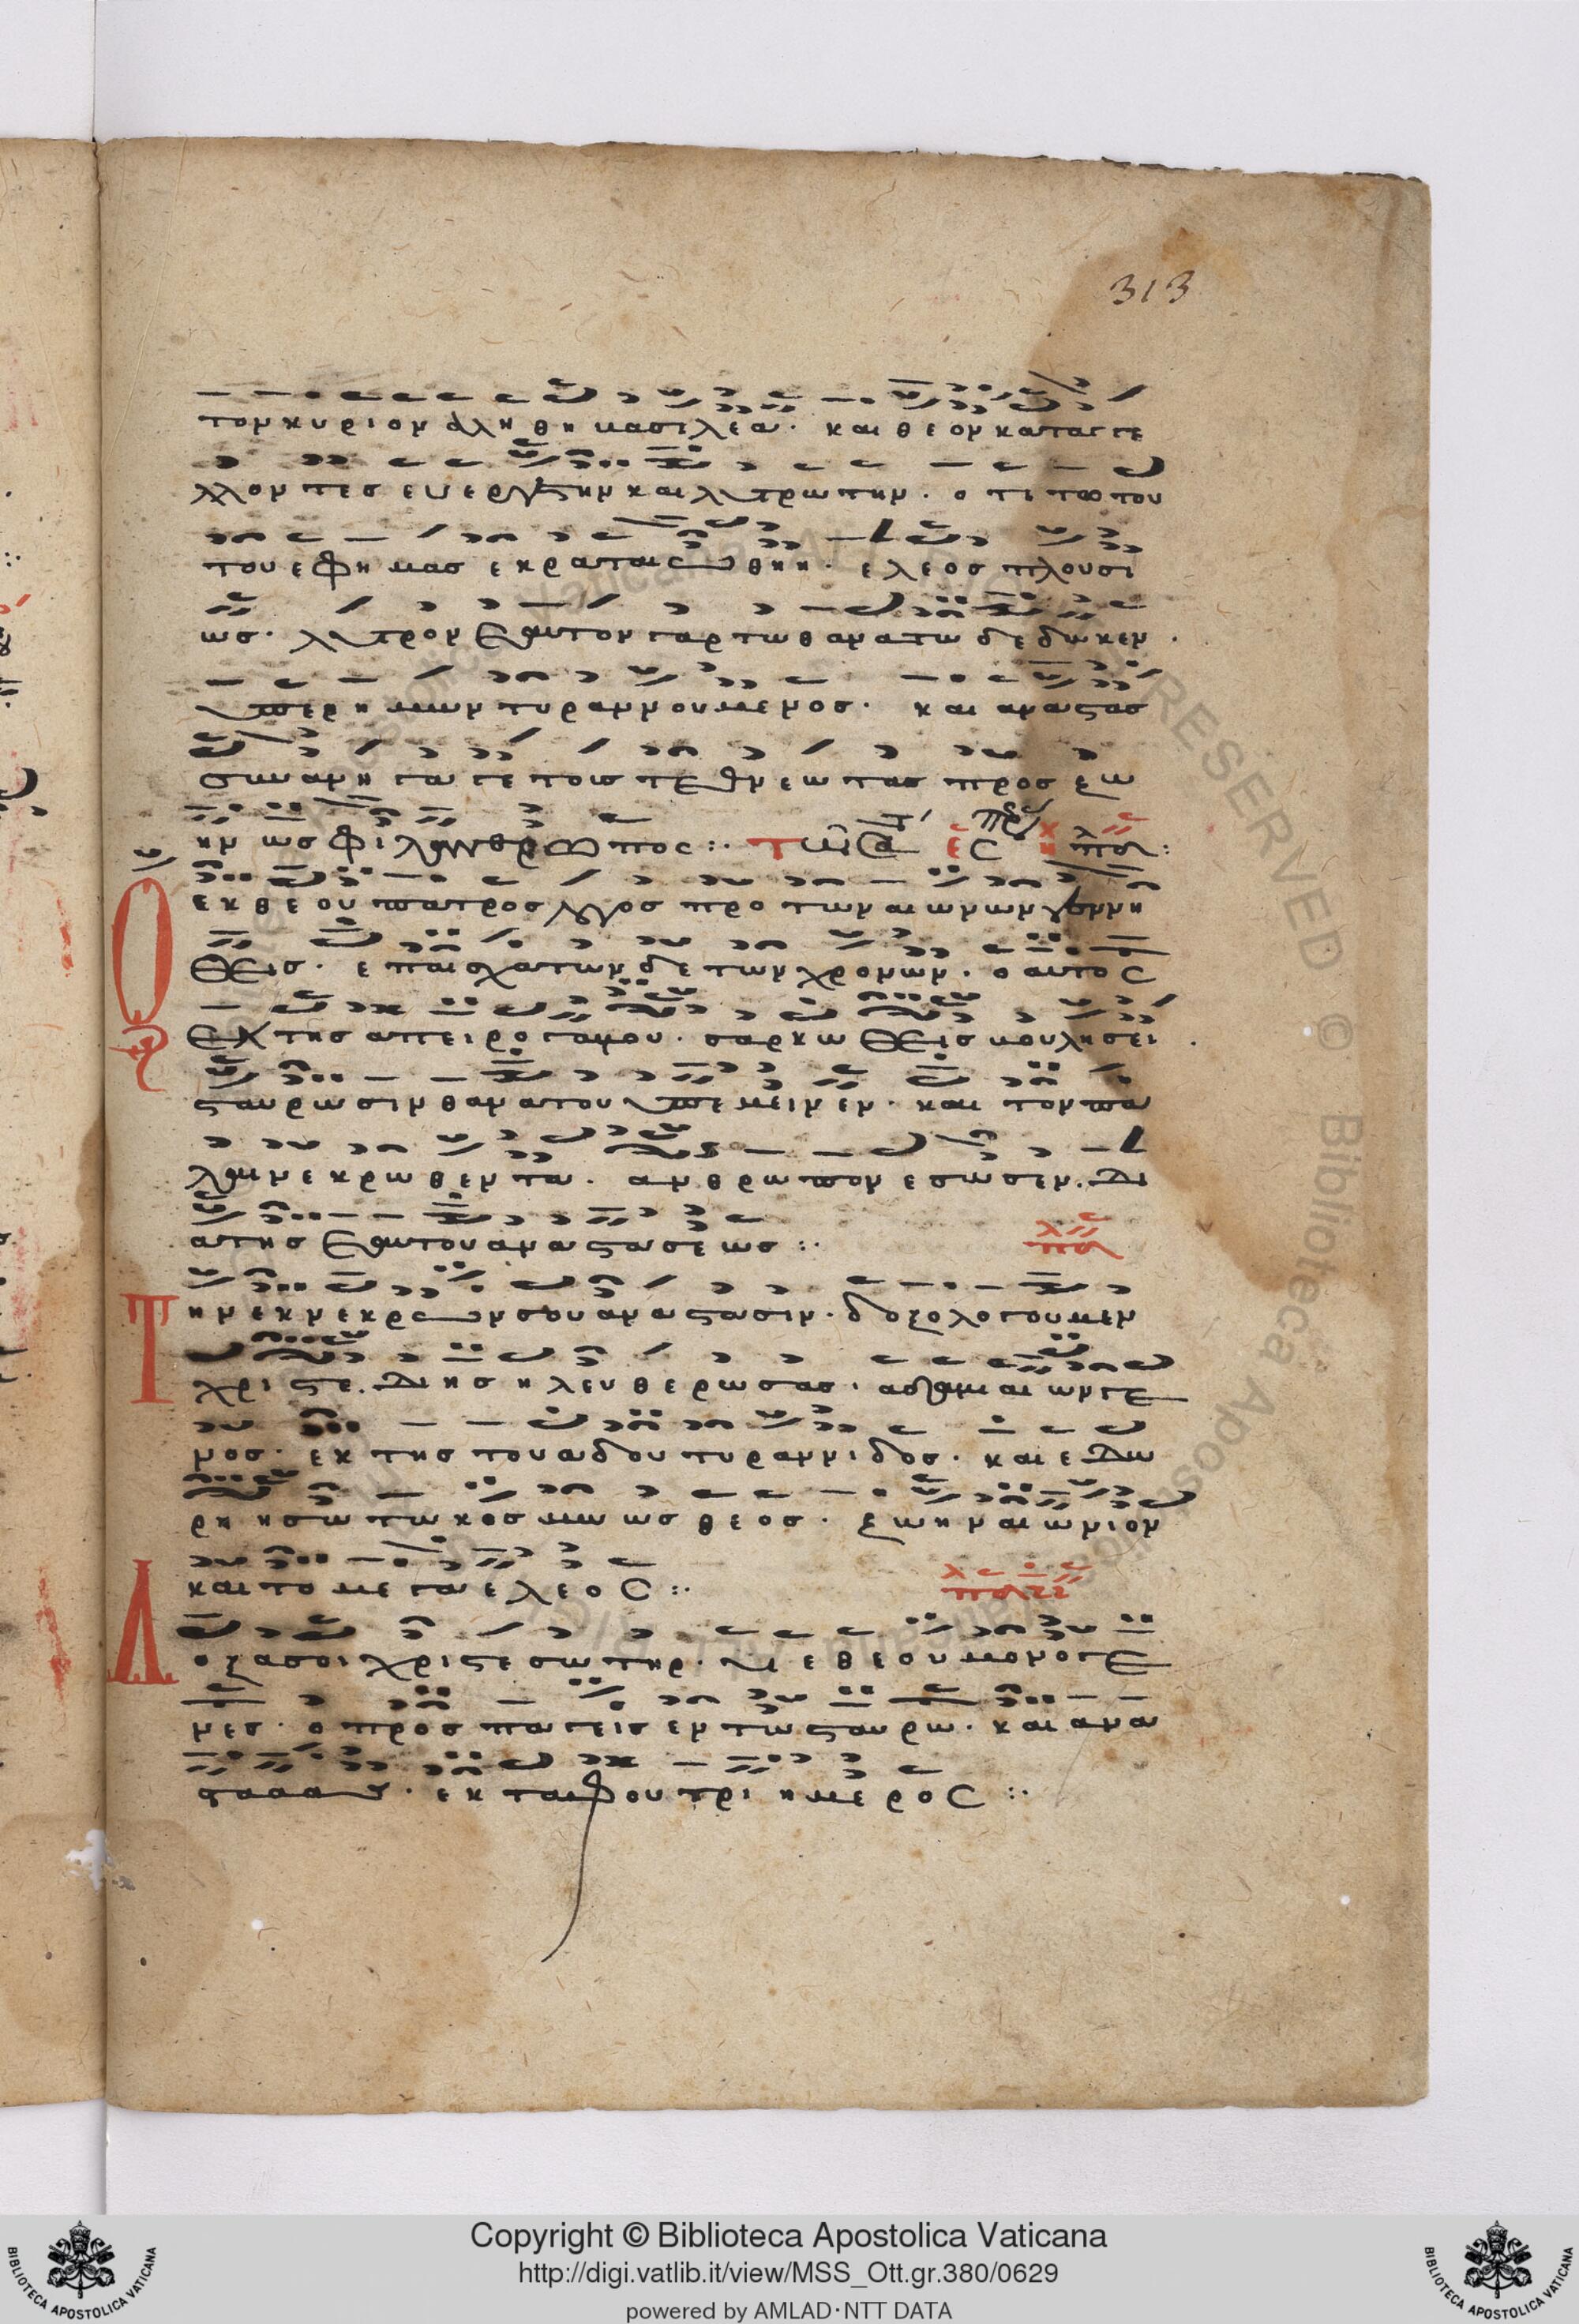 313
τον κυριον αληθη βασιλεα· και θεον καταγγε
λλοντες ευεργετην και λυτρωτην· οτι το του
του εφ ημας εκραταιωθη· ελεος πλουσι
ως· λυτρον εαυτον γαρ τω θανατω δεδωκεν·
υπερ ημων τυραννουμενος· και αναστας
συνανηγαγε τους τεθνεωτας προς ζω
ην ως φιλανθρωπος:·
Ο εκ θεου πατρος λογος προ των αιωνων γεννη
θεις· επ αισχατων δε των χρονων· ο αυτος
εκ της απειρογαμου· σαρκωθεις βουλησει·
σταυρωσιν θανατου υπεμεινεν· και τον πα
λαι νεκρωθεντα· ανθρωπον εσωσεν· δι
α της εαυτου αναστασεως:·
Την εκ νεκρων σου αναστασιν· δοξολογουμεν
χριστε· δι ης ηλευθερωσας· αδαμιαιον γε
νος· εκ της του αδου τυραννιδος· και εδω
ρησω τω κοσμω ως θεος· ζωην αιωνιον
και το μεγα ελεος:·
Δοξα σοι χριστε σωτηρ· υιε θεου μονογε
νες· ο προσπαγεις εν τω σταυρω· και ανα
στας· εκ ταφου τριημερος:·
Copyright © Biblioteca Apostolica Vaticana
http://digi.vatlib.it/view/MSS_Ott.gr.380/0629
powered by AMLAD·NTT DATA
BIBLIOTECA APOSTOLICA VATICANA
BIBLIOTECA APOSTOLICA VATICANA